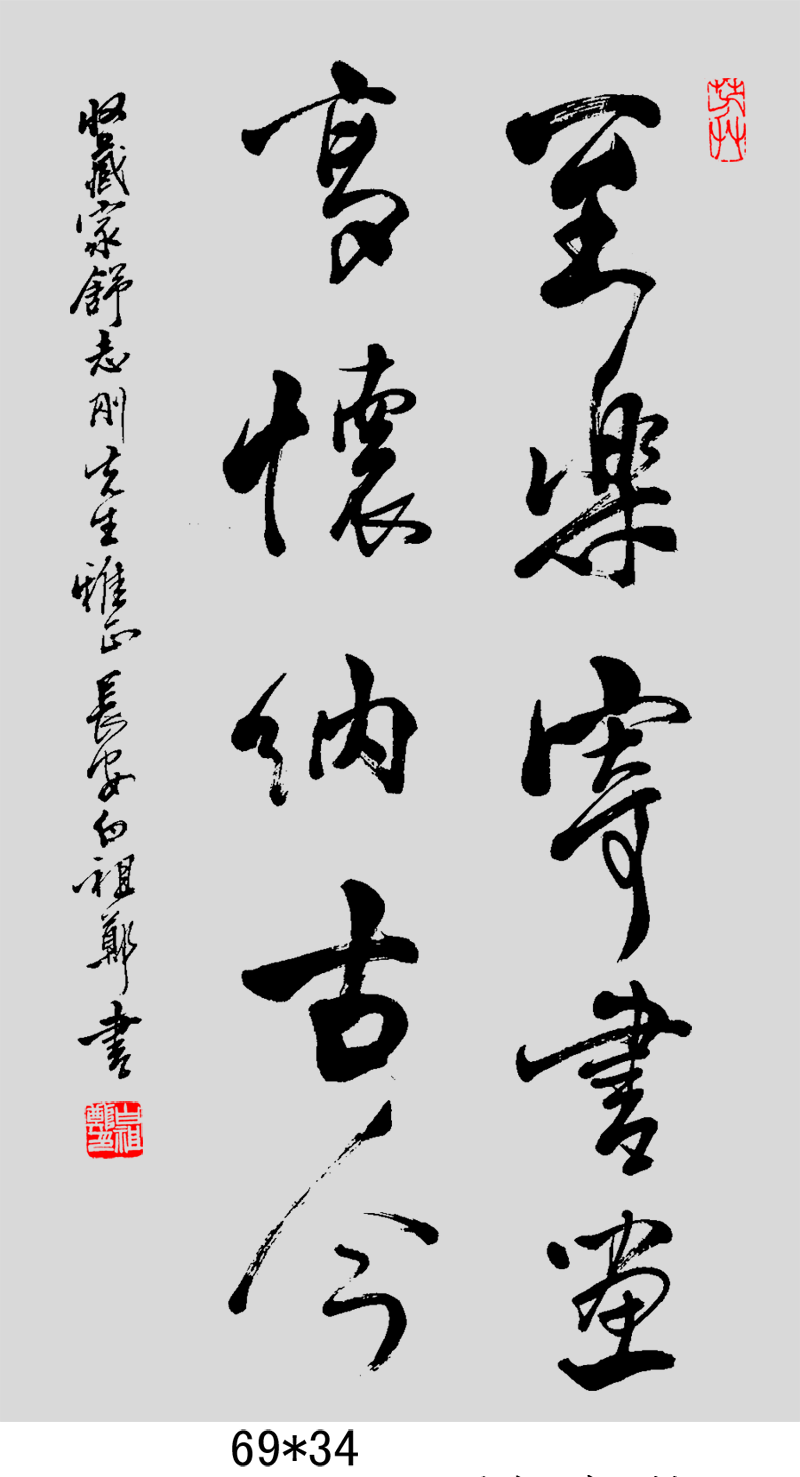 至樂寄書畫
高懷納古今
收藏家舒志刚先生雅正長安白祖鄭書
69*34